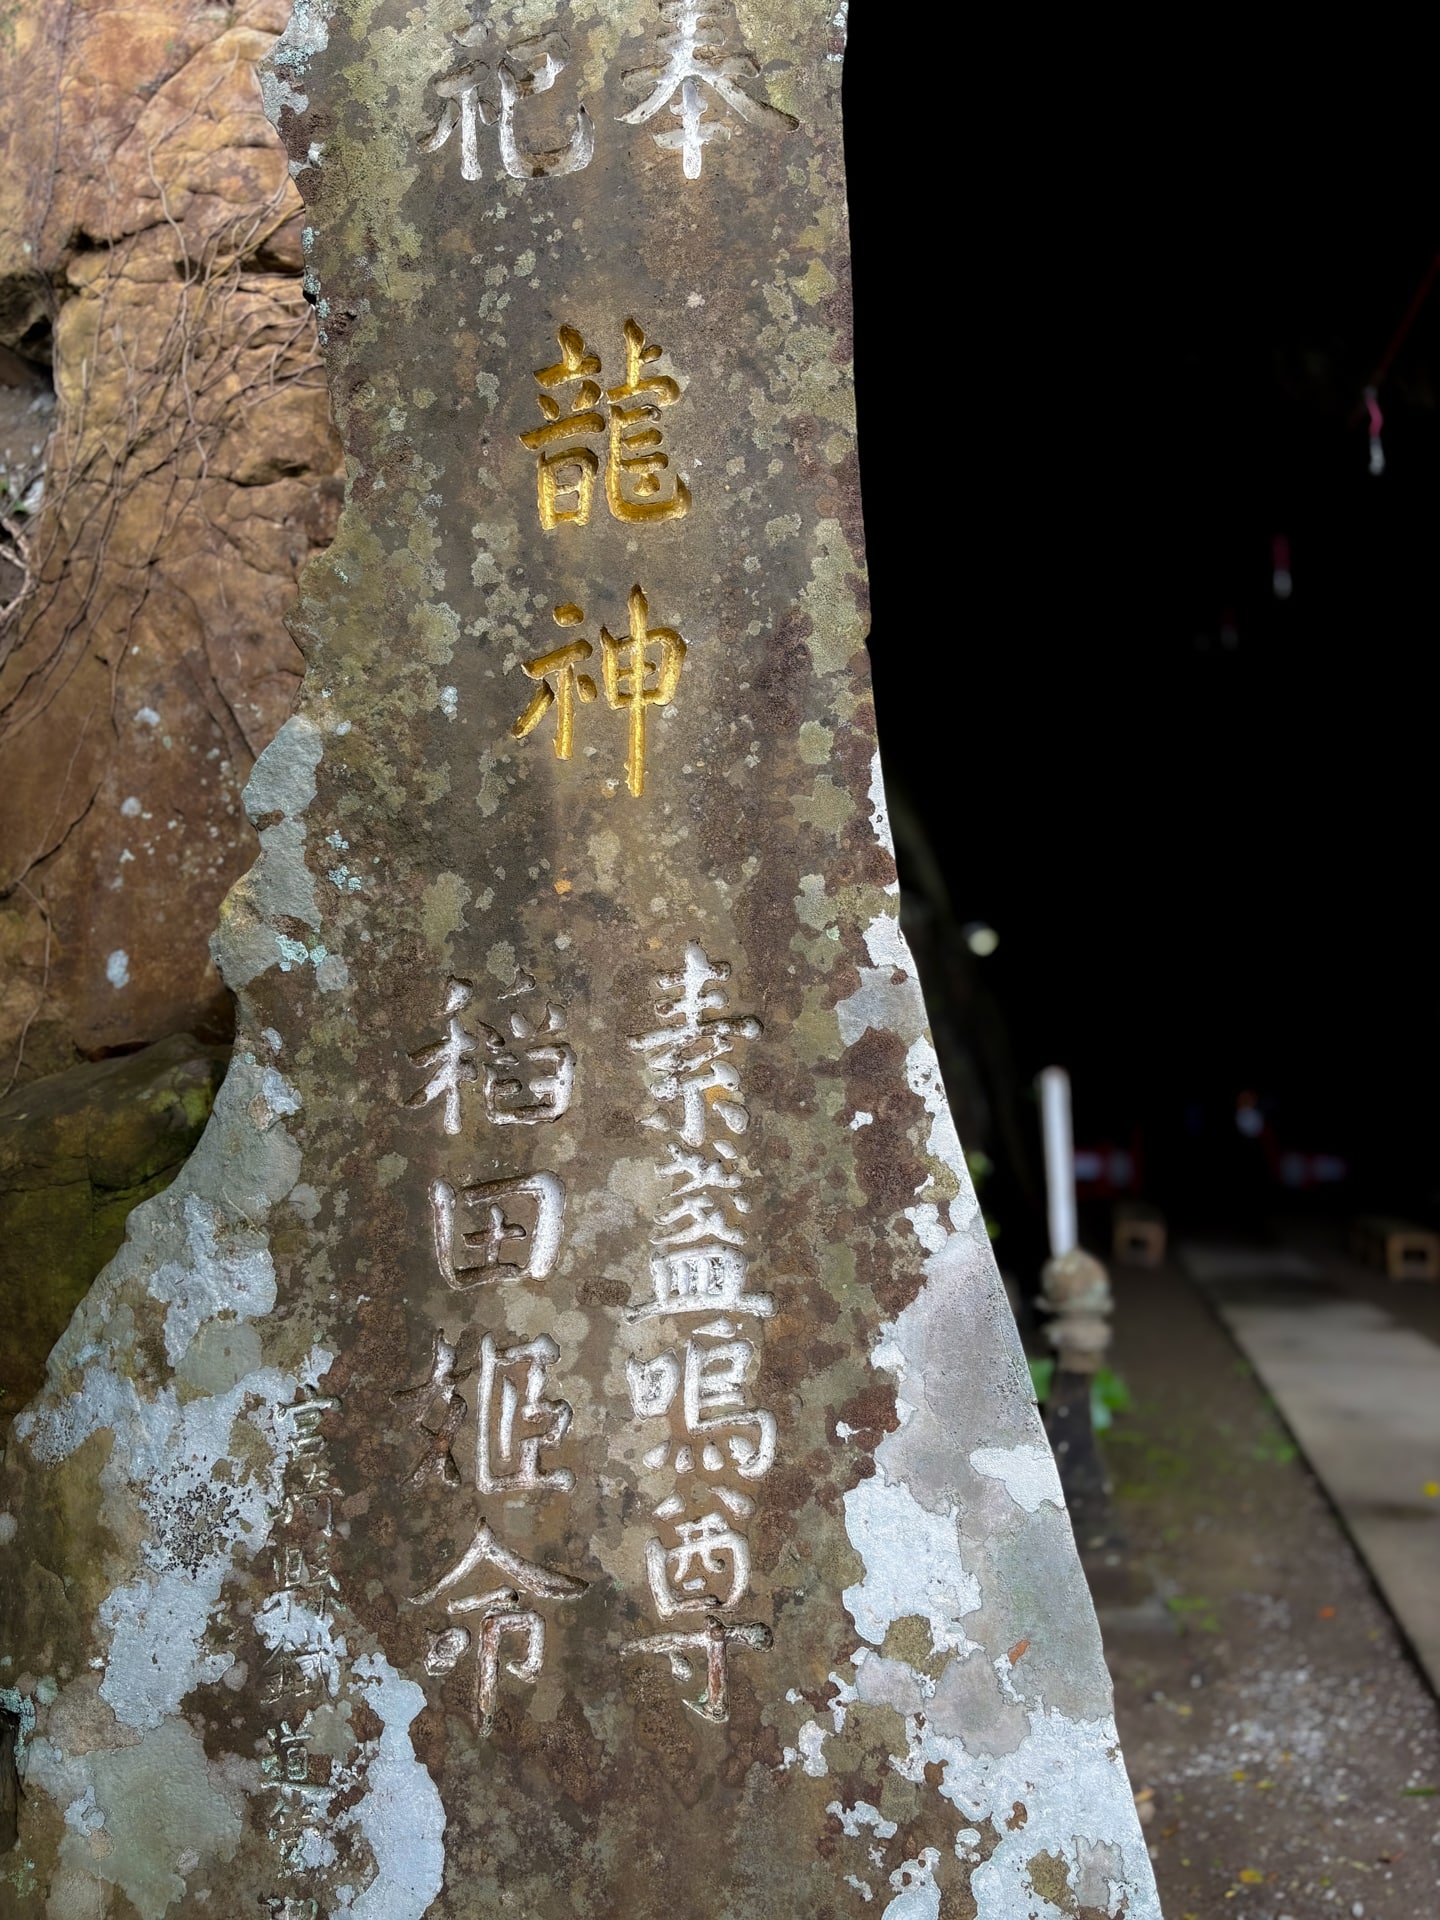 奉
祀
龍神
素盞嗚尊
稲田姫命
宮崎縣